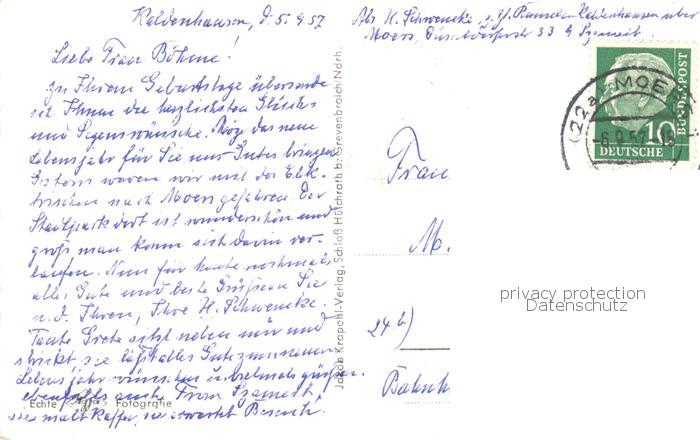 Kaldenhausen, d. 5.9.57
Liebe Frau Böhme!
Zu Ihrem Geburtstage übersende
ich Ihnen die herzlichsten Glück-
und Segenswünsche. Möge das neue
Lebensjahr für Sie nur Gutes bringen.
Gestern waren wir mit der Elek-
trischen nach Moers gefahren. Der
Stadtpark dort ist wunderschön und
groß, man kann sich darin ver-
laufen. Nun für heute nochmals
alles Gute und beste Grüße an Sie
u. d. Ihren, Ihre H. Schwencke.
Tante Grete sitzt neben mir und
strickt, sie läßt alles Gute zum neuen
Lebensjahr wünschen u. vielmals grüßen
ebenfalls auch Frau Szameit,
sie malt Kaffee, sie erwartet Besuch.
Echte Agfa Fotografie
Jacob Krapohl-Verlag, Schloß Hülchrath b. Grevenbroich/Ndrh.
Abs. H. Schwencke, z. Zt. Rumeln-Kaldenhausen über
Moers, Düsseldorferstr 33 b Szameit.
Frau
M.
24b)
Bahnh
(22a) MOE
-6.9.57-15
10
DEUTSCHE
BUNDESPOST
privacy protection
Datenschutz